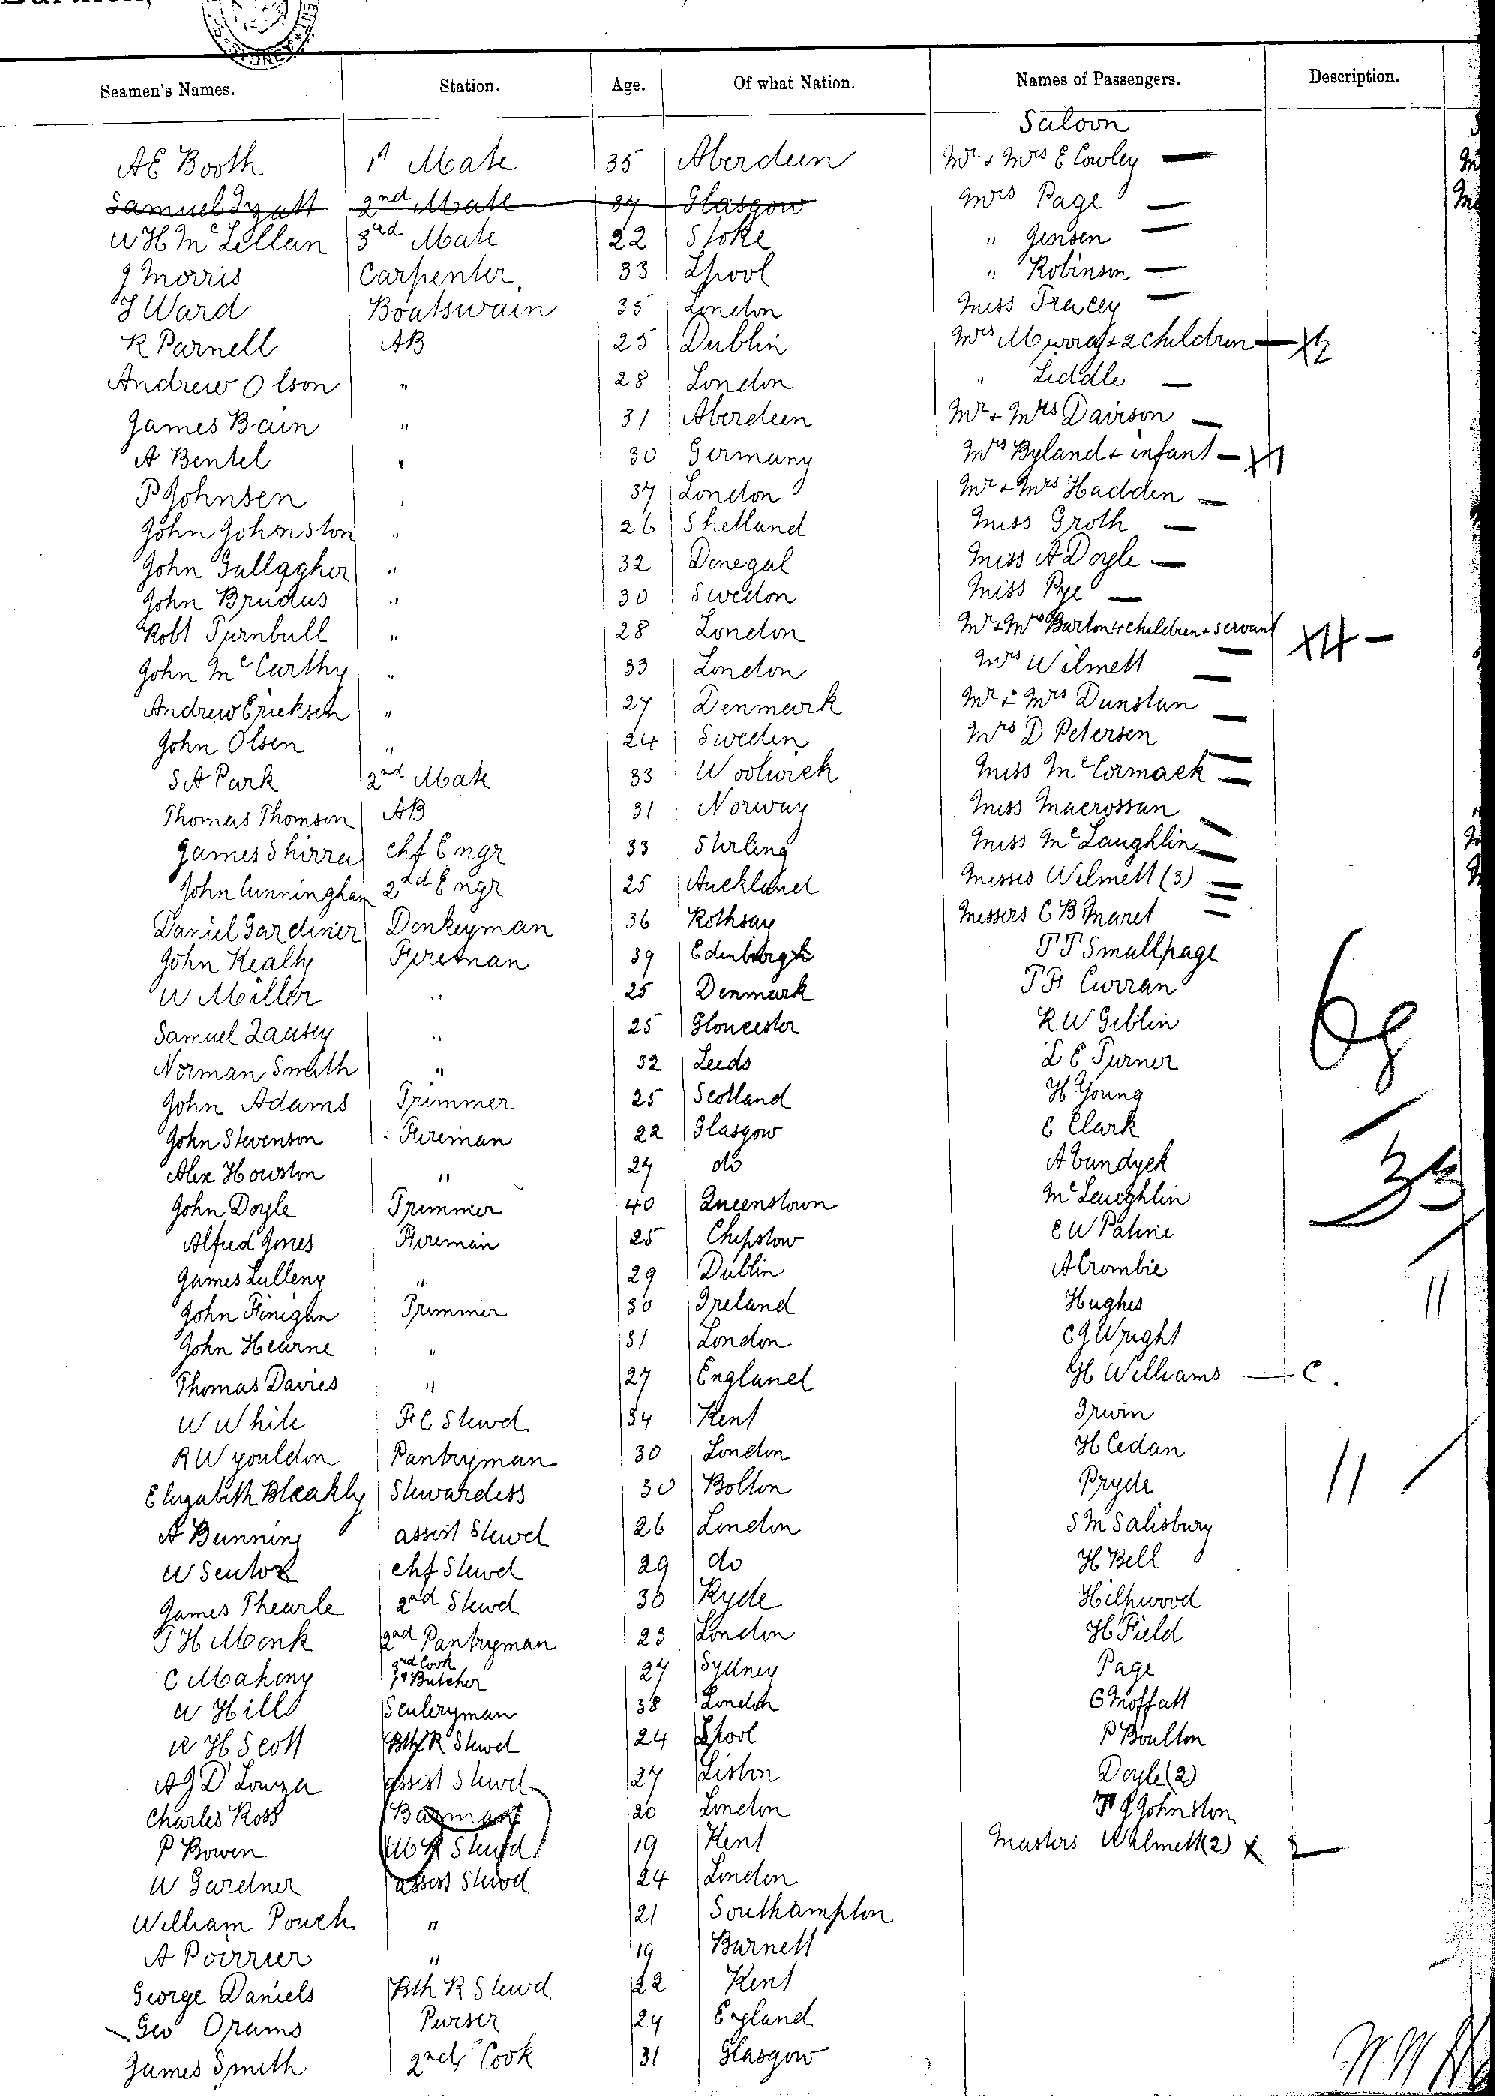 Seamen's Names. Station. Age. Of what Nation. Names of Passengers. Description.
Saloon
AE Booth 1st Mate 35 Aberdeen Mr + Mrs E Cowley —
Samuel Tyatt 2nd Mate 37 Glasgow Mrs Page —
W H McLellan 3rd Mate 22 Stoke " Jensen —
J Morris Carpenter 33 Lpool " Robinson —
T Ward Boatswain 35 London Miss Tracey —
R Parnell AB 25 Dublin Mrs Murray + 2 children — X2
Andrew Olson " 28 London " Liddle —
James Bain " 31 Aberdeen Mr + Mrs Dairson —
A Bentel " 30 Germany Mrs Byland + infant — X1
P Johnsen " 37 London Mr + Mrs Hadden —
John Johnston " 26 Shetland Miss Groth —
John Gallagher " 32 Donegal Miss A Doyle —
John Brudus " 30 Sweden Miss Pye —
Robt Turnbull " 28 London Mr + Mrs Barton + children + servant X4 —
John McCarthy " 33 London Mrs Wilmett —
Andrew Ericksen " 27 Denmark Mr + Mrs Dunstan —
John Olsen " 24 Sweden Mrs D Petersen
S A Park 2nd Mate 33 Woolwich Miss McCormack
Thomas Thomson AB 31 Norway Miss Macrossan
James Shirra Chf Engr 33 Stirling Miss McLaughlin
John Cunningham 2nd Engr 25 Auckland Misses Wilmett (3)
Daniel Gardiner Donkeyman 36 Rothsay Messers C B Maret
John Kealty Fireman 39 Edinburgh T T Smallpage
W Miller " 25 Denmark T F Curran
Samuel Lausey " 25 Gloucester R W Geblin
Norman Smith " 32 Leeds L E Turner
John Adams Trimmer 25 Scotland H Young
John Stevenson Fireman 22 Glasgow E Clark
Alex Houston " 27 do A Vandyck
John Doyle Trimmer 40 Queenstown McLaughlin
Alfred Jones Fireman 25 Chepstow E W Paline
James Lulleny " 29 Dublin A Crombie
John Finigan Trimmer 30 Ireland Hughes 11
John Hearne " 31 London C J Wright
Thomas Davies " 27 England H Williams — C.
W White F C Stewd 34 Kent Irwin
R W Youldon Pantryman 30 London H Cedan
Elizabeth Bleakly Stewardess 30 Bolton Pryde 11
A Bunning assist Stewd 26 London S M Salisbury
W Seutor chf Stewd 29 do H Bell
James Thearle 2nd Stewd 30 Ryde Hilpwood
T H Monk 2nd Pantryman 23 London H Field
C Mahony 3rd Cook + Butcher 27 Sydney Page
W Hill Sculeryman 38 London G Moffatt
W H Scott Bth R Stewd 24 Lpool P Boulton
A J D'Louza assist Stewd 27 Lisbon Doyle (2)
Charles Ross Barman 20 London F J Johnston
P Bowen M R Stewd 19 Kent Masters Wilmett (2) X 2 —
W Gardner assist Stewd 24 London
William Pouch " 21 Southampton
A Poirrier " 19 Burnett
George Daniels Bth R Stewd 22 Kent
Geo Orams Purser 24 England
James Smith 2nd Cook 31 Glasgow